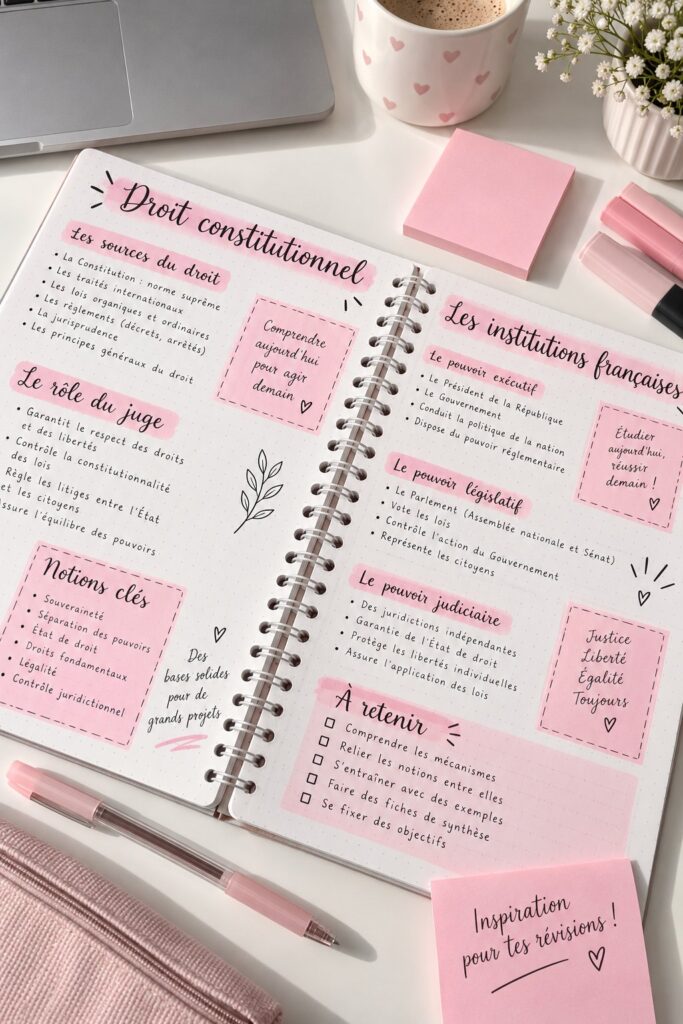 Droit constitutionnel
Les sources du droit
• La Constitution : norme suprême
• Les traités internationaux
• Les lois organiques et ordinaires
• Les règlements (décrets, arrêtés)
• La jurisprudence
• Les principes généraux du droit
Comprendre
aujourd'hui
pour agir
demain ♡
Le rôle du juge
• Garantit le respect des droits
et des libertés
• Contrôle la constitutionnalité
des lois
Règle les litiges entre l'État
et les citoyens
Assure l'équilibre des pouvoirs
Notions clés
• Souveraineté
• Séparation des pouvoirs
• État de droit
• Droits fondamentaux
• Légalité
• Contrôle juridictionnel
Des
bases solides
pour de
grands projets
Les institutions françaises
Le pouvoir exécutif
• Le Président de la République
• Le Gouvernement
• Conduit la politique de la nation
• Dispose du pouvoir réglementaire
Étudier
aujourd'hui,
réussir
demain !
Le pouvoir législatif
• Le Parlement (Assemblée nationale et Sénat)
• Vote les lois
• Contrôle l'action du Gouvernement
• Représente les citoyens
Le pouvoir judiciaire
• Des juridictions indépendantes
• Garantie de l'État de droit
• Protège les libertés individuelles
• Assure l'application des lois
Justice
Liberté
Égalité
Toujours
À retenir
☐ Comprendre les mécanismes
☐ Relier les notions entre elles
☐ S'entraîner avec des exemples
☐ Faire des fiches de synthèse
☐ Se fixer des objectifs
Inspiration
pour tes révisions !